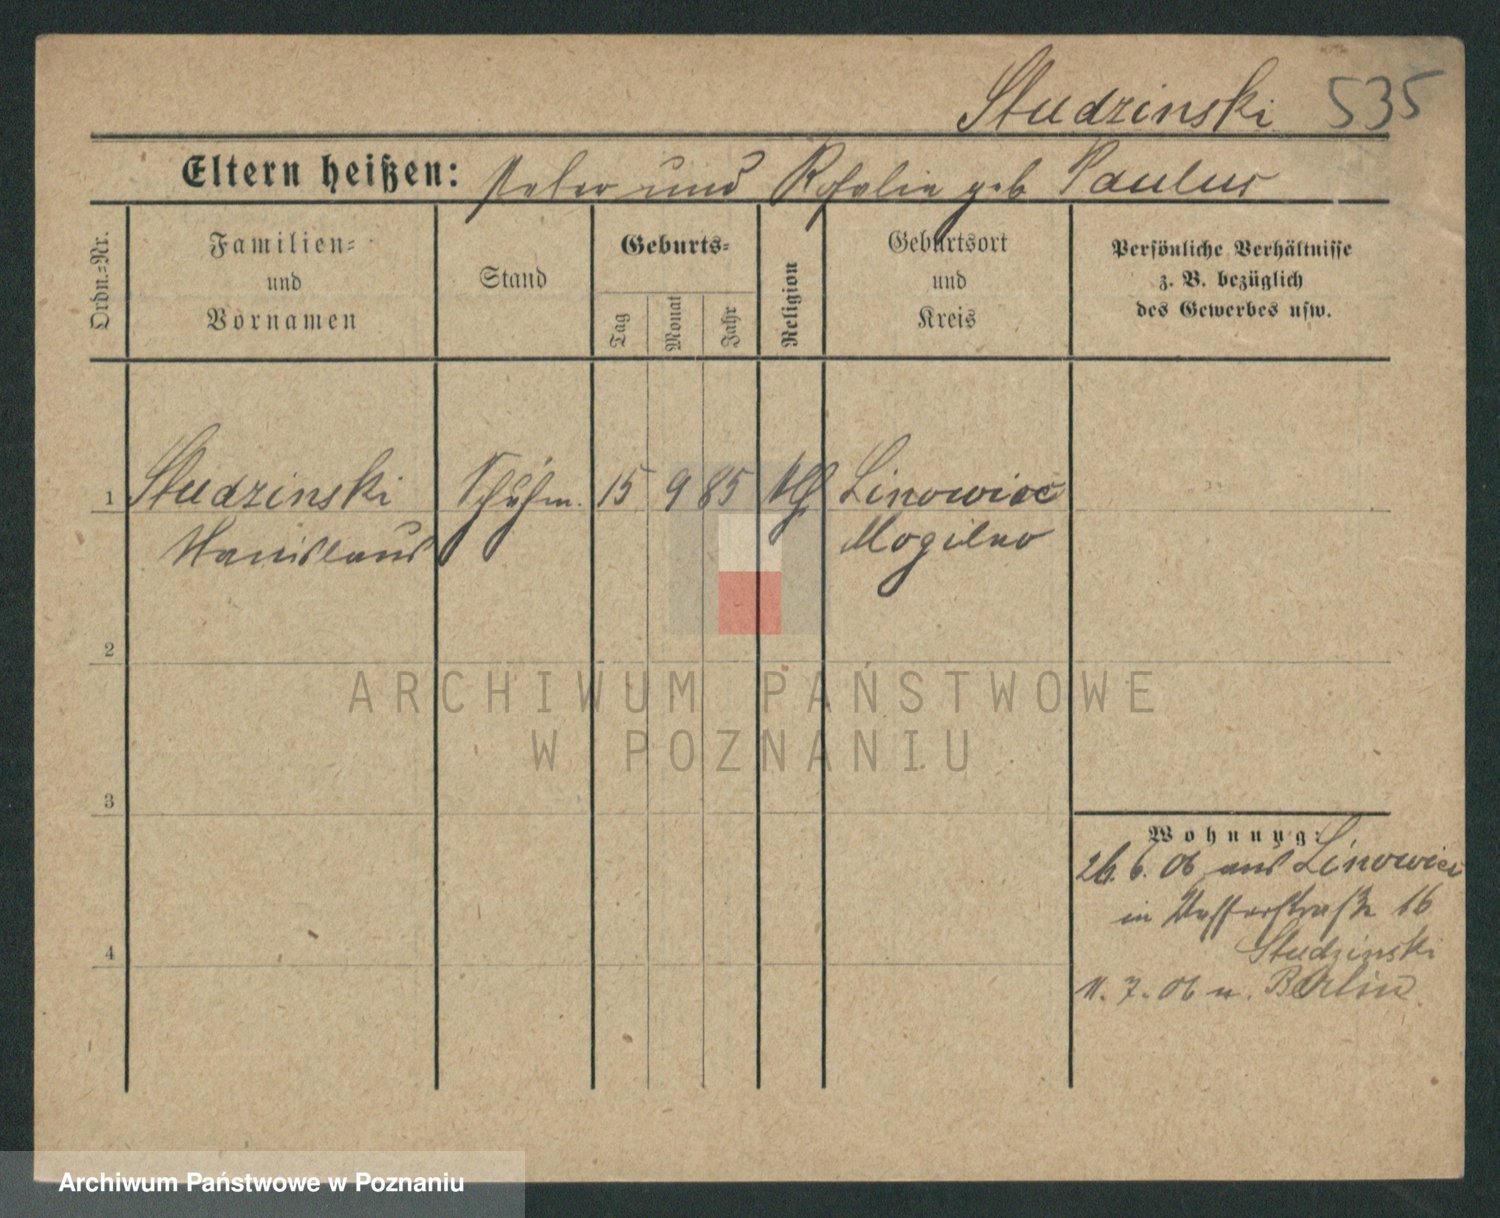 Studzinski 535
Eltern heißen: Peter und Rosalie geb Paulus
Ordn.=Nr.
Familien=
und
Vornamen
Stand
Geburts=
Tag
Monat
Jahr
Religion
Geburtsort
und
Kreis
Persönliche Verhältnisse
z. B. bezüglich
des Gewerbes usw.
1 Studzinski Schuhm. 15 9 85 Linowiec
Stanislaus Mogilno
2
ARCHIWUM PAŃSTWOWE
W POZNANIU
3
Wohnung:
26. 6. 06 aus Linowiec
in 16
Studzinski
4
11. 7. 06 n. Berlin
Archiwum Państwowe w Poznaniu